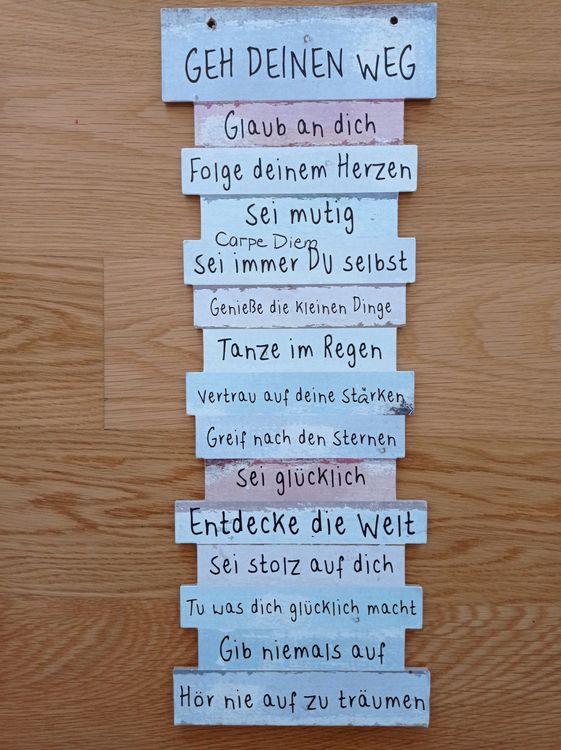 GEH DEINEN WEG
Glaub an dich
Folge deinem Herzen
Sei mutig
Carpe Diem
Sei immer DU selbst
Genieße die kleinen Dinge
Tanze im Regen
Vertrau auf deine Stärken
Greif nach den Sternen
Sei glücklich
Entdecke die Welt
Sei stolz auf dich
Tu was dich glücklich macht
Gib niemals auf
Hör nie auf zu träumen